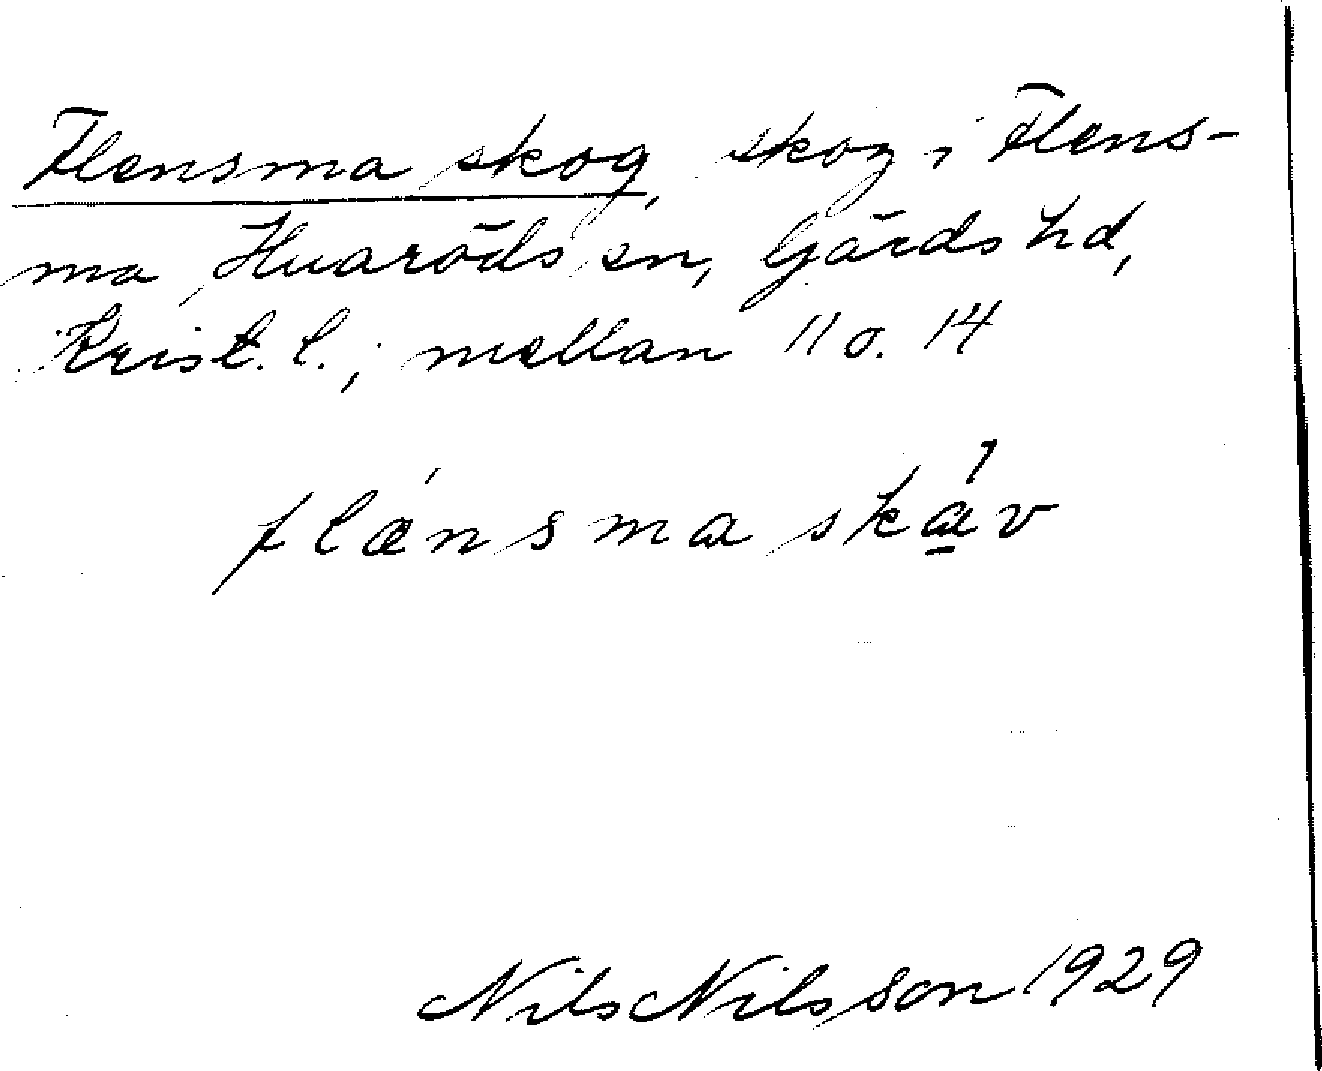 Flensma skog, skog i Flens-
ma, Huaröds sn, Gärds hd,
Krist. l.; mellan 11 o. 14
flænsma skav
Nils Nilsson 1929